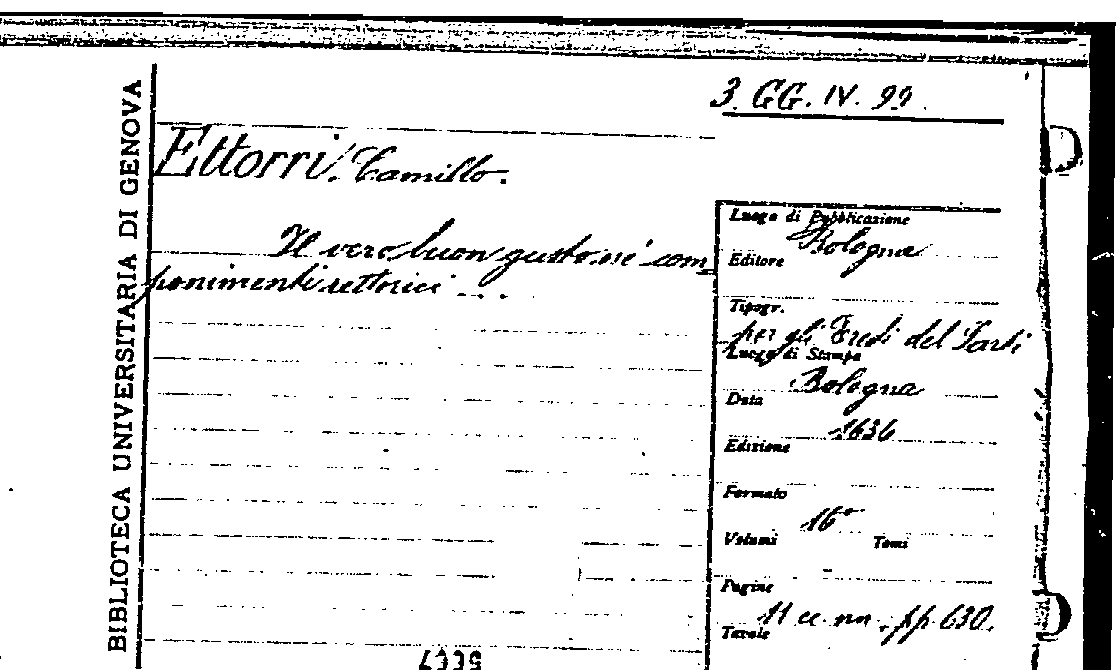 BIBLIOTECA UNIVERSITARIA DI GENOVA
3. GG. IV. 99.
Ettorri, Camillo.
Il vero buon gusto né com
ponimenti rettorici ...
Luogo di Pubblicazione
Bologna
Editore
Tipogr.
per gli Eredi del Sarti
Luogo di Stampa
Bologna
Data
1636
Edizione
Formato
16°
Volumi Tomi
Pagine
11 cc. nn., pp. 630.
Tavole